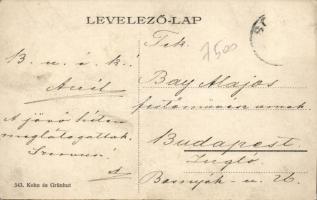 LEVELEZŐ-LAP
7500
B. u. é. k.!
Aurél
A jövő héten
meglátogatlak.
Szervusz
A
543. Kohn és Grünhut
Tek.
Bay Alajos
festőművész urnak
Budapest
Zugló
u. 26.